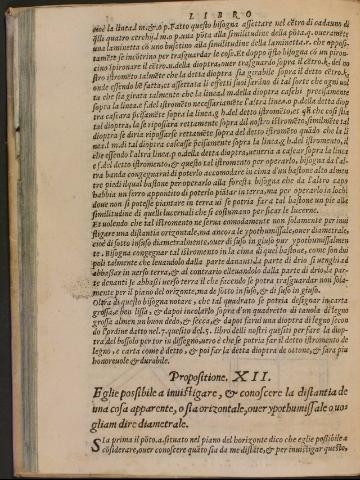 LIBRO
cioè la linea.l m.& o p. Fatto questo bisogna assettare nel cẽtro di cadauno di
q̃lli quatro cerchij.l m.o p. una põta alla similitudine della põta.q. oueramẽte
una laminetta cõ uno busettino alla similitudine della laminetta.r. che oppositamẽte se incõtrino per trasguardar le cose. Et doppo q̃sto bisogna cõ un pironcino
stro istromẽto talmẽte che la detta dioptra sia girabile sopra il detto cẽtro.k.
sopra la linea.e f. del istromẽto necessariamẽte l'altra linea.o p. della detta dioptra
tal dioptra, la se ripossara rettamẽte sopra del nostro istromẽto, similmẽte tal
dioptra se diria ripossarse rettamẽte sopra del detto istromẽto quãdo che la linea.l m. di tal dioptra calcasse precisamẽte sopra la linea.g h. del istromento, il
che essendo l'altra linea.o p. della detta dioptra, ueneria a cascar sopra la linea
e f. del detto istromẽto, & questo tal istromento per operarlo, bisogna da l'altra banda congegnarui di poterlo accomodare in cima d'un bastone alto almen
tre piedi il qual bastone per operarlo alla foresta bisogna che da l'altro capo
habbia un ferro apponito di poterlo pistar in terra, ma per operarlo in lochi
doue non se potesse piantare in terra ui se potria fara tal bastone un pie alla
similitudine di quelli lucernali che si costumano per ficar le lucerne.
Et uolendo che tal istromento ne serua comodamente non solamente per inuistigare una distantia orizontale, ma ancora le ypothumissale, ouer diametrale,
cioè di sotto insuso diametralmente, ouer di suso in giuso pur ypothumissalmente. Bisogna congegnar tal istromento in la cima di quel bastone, come fondui
poli talmente che leuandolo dalla parte denanti, da parte di drio se uenghi ad
abbassar in uerso terra, & al contrario elleuandolo dalla parte di drio, la parte denanti se abbassi uerso terra il che facendo se potra trasguardar non solamente per il piano del orizonte, ma de sotto in suso, & di suso in giuso.
Oltra di questo bisogna notare, che tal quadrato se potria designar in carta
grossa, e ben lissa, & dapoi incolarlo sopra d'un quadretto di tauola di legno
grossa almen un buon dedo, & secca, & dapoi farui una dioptra di legno secondo l'ordine datto nel.7. quesito del.5. libro delli nostri quesiti per fare la dioptra del bossolo per tor in dissegno, uero è che se potria far il detto istromento de
legno, e carta come è detto, & poi far la detta dioptra de ottone, & fara piu
honoreuole & durabile.
Propositione. XII.
Eglie possibile a inuistigare, & conoscere la distantia de
una cosa apparente, o sia orizontale, ouer ypothumissale o uogliam dire diametrale.
Sia prima il põto.a. situato nel piano del horizonte dico che eglie possibile a
cõsiderare, ouer conoscere quãto sia da me distãte, & per inuistigar questo,